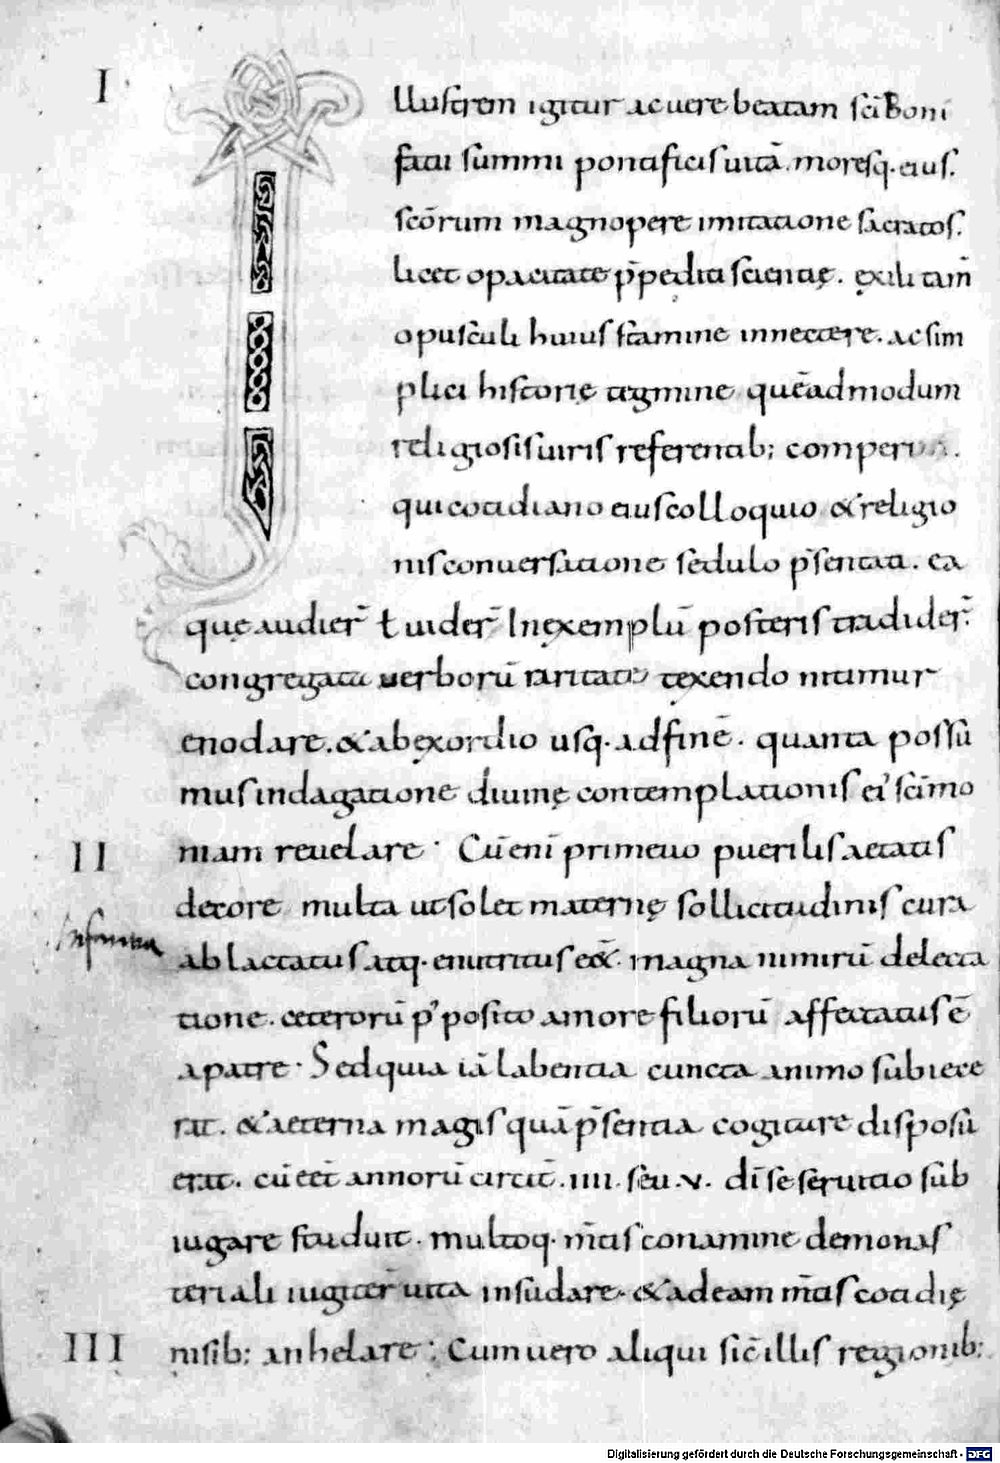 I
Illustrem igitur ac uere beatam sc̄i Boni
fatii summi pontificis uitā. moresq. eius.
scōrum magnopere imitatione sacratos.
licet opacitate p̄pediti scientię. exili tam̄
opusculi huius stamine innectere. ac sim
plici historię tegmine quēadmodum
religiosis uiris referentib; comper
qui cotidiano eius colloquio & religio
nis conuersatione sedulo p̄sentati. ea
quę audier̄ ł uider̄ In exemplū posteris tradider̄.
congregata uerborū raritate texendo nitimur
enodare. & ab exordio usq. ad finē. quanta possu
mus indagatione diuinę contemplationis ei' sc̄imo
II
niam reuelare. Cū enī primeuo puerilis aetatis
decore multa ut solet maternę sollicitudinis cura
Infantia
ablactatus atq. enutritus eēt. magna nimirū delecta
tione. ceterorū p'posito amore filiorū affectatus ē
a patre. Sed quia iā labentia cuncta animo subiece
rat. & aeterna magis quā p̄sentia cogitare disposu
erat. cū eēt annorū circit̄. IIII. seu. V. dī se seruitio sub
iugare studuit. multoq. m̄tis conamine de monas
teriali iugiter uita insudare. & ad eam m̄tis cotidię
III
nisib; anhelare; Cum uero aliqui sic̄ illis regionib;
Digitalisierung gefördert durch die Deutsche Forschungsgemeinschaft - DFG